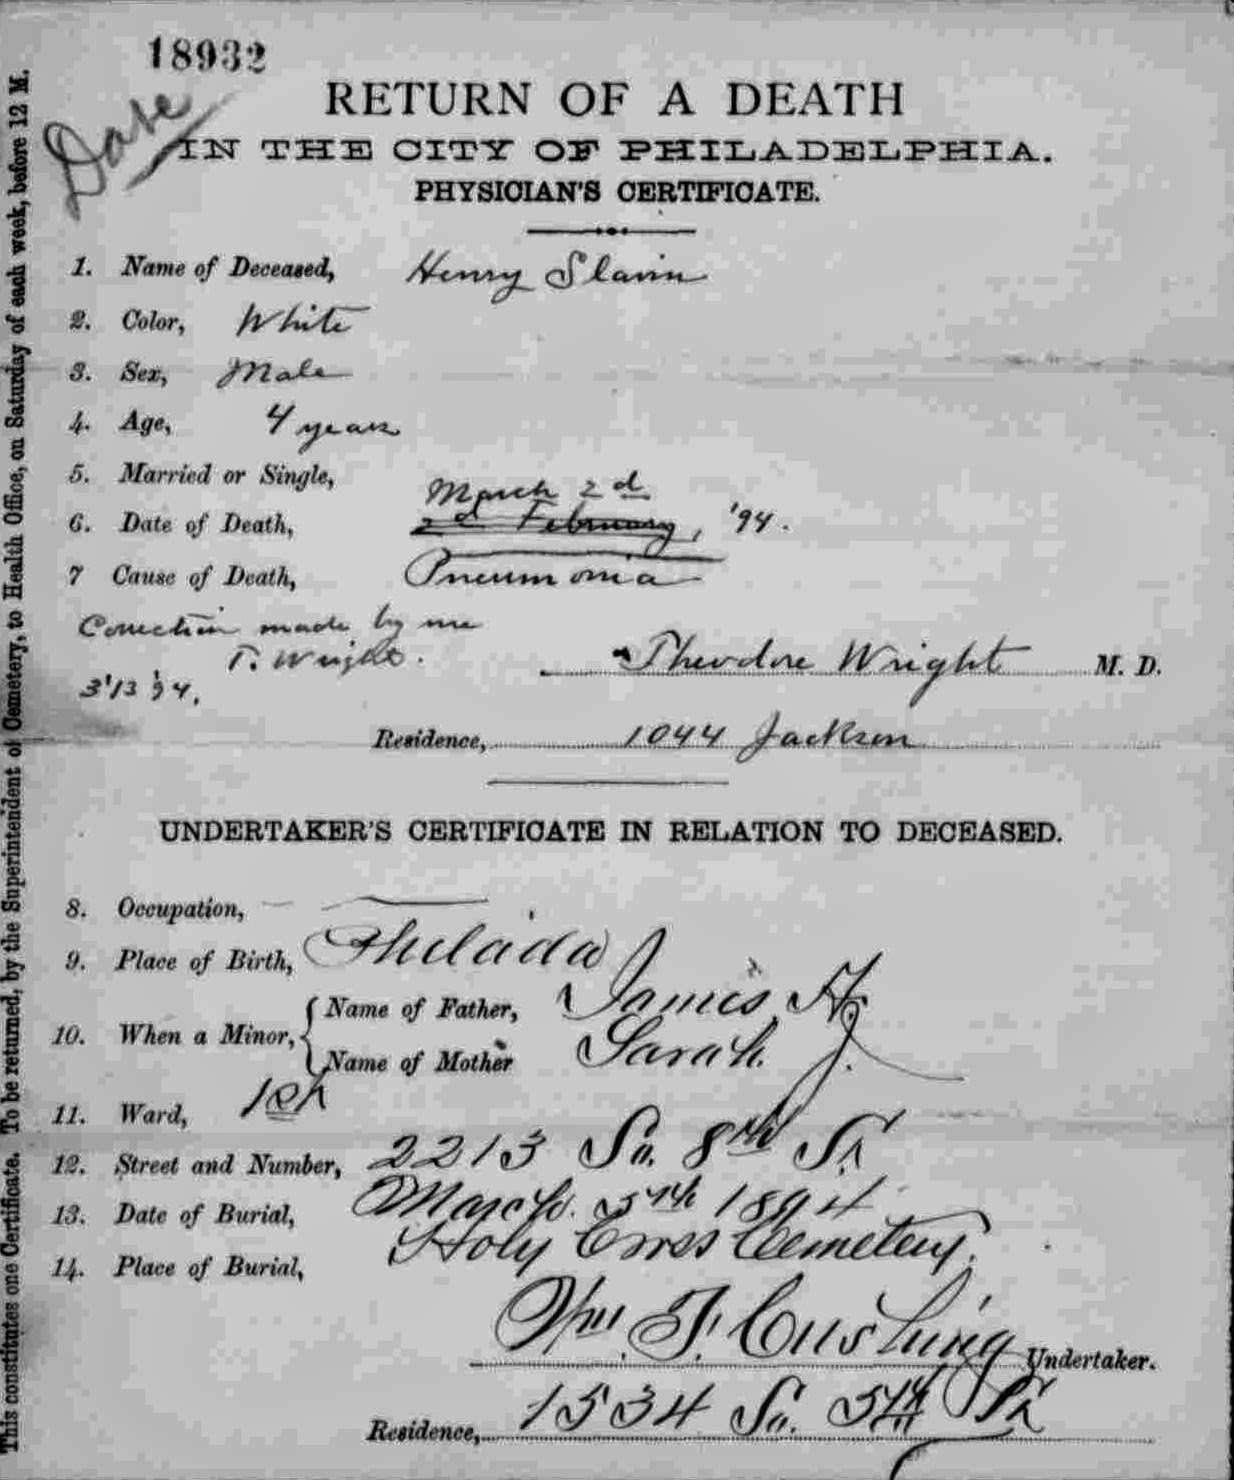 18932
Date
RETURN OF A DEATH
IN THE CITY OF PHILADELPHIA.
PHYSICIAN'S CERTIFICATE.
1. Name of Deceased, Henry Slavin
2. Color, White
3. Sex, Male
4. Age, 4 years
5. Married or Single,
March 2d
6. Date of Death, 2d February, '94.
7 Cause of Death, Pneumonia
Correction made by me
T. Wright.
3/13 '94.
Theodore Wright M. D.
Residence, 1044 Jackson
UNDERTAKER'S CERTIFICATE IN RELATION TO DECEASED.
8. Occupation,
9. Place of Birth, Philada
10. When a Minor, Name of Father, James H.
Name of Mother Sarah J.
11. Ward, 1st
12. Street and Number, 2213 So. 8th St
13. Date of Burial, March 5th 1894
14. Place of Burial, Holy Cross Cemetery.
Wm. F. Cushing Undertaker.
Residence, 1534 So. 5th St
This constitutes one Certificate. To be returned, by the Superintendent of Cemetery, to Health Office, on Saturday of each week, before 12 M.